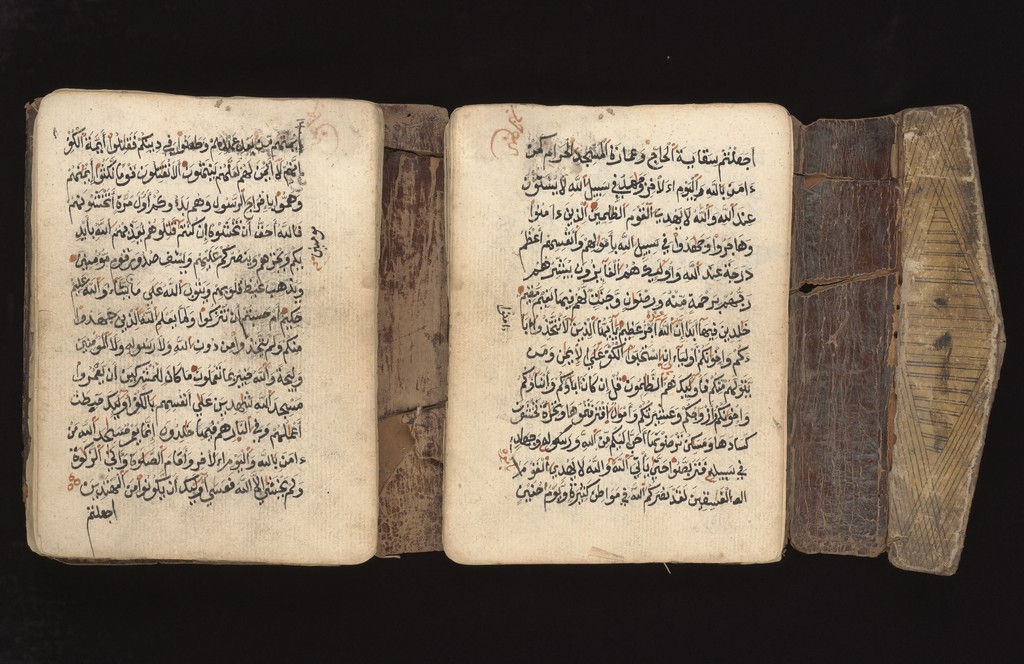 أيمنهم من بعد عهدهم وطعنوا في دينكم فقتلوا أيمة الكفر
إنهم لا أيمن لهم لعلهم ينتهون ألا تقتلون قوما نكثوا أيمنهم
وهموا بإخراج الرسول وهم بدءوكم أول مرة أتخشونهم
فالله أحق أن تخشوه إن كنتم قتلوهم يعذبهم الله بأيد
مومنين
يكم ويخزهم وينصركم عليهم ويشف صدور قوم مومنين
ويذهب غيظ قلوبهم ويتوب الله على من يشاء والله عليم
حكيم أم حسبتم أن تتركوا ولما يعلم الله الذين جهدوا
منكم ولم يتخذوا من دون الله ولا رسوله ولا المومنين
وليجة والله خبير بما تعملون ما كان للمشركين أن يعمروا
مسجد الله شهدين على أنفسهم بالكفر أوليك حبطت
أعملهم وفي النار هم خلدون إنما يعمر مسجد الله من
ءامن بالله واليوم الاخر وأقام الصلوة وءاتى الزكوة
ولم يخش إلا الله فعسى أوليك أن يكونوا من المهتدين
اجعلتم
اجعلتم سقاية الحاج وعمارة المسجد الحرام كمن
ءامن بالله واليوم الاخر وجهد في سبيل الله لا يستون
عند الله والله لا يهدي القوم الظلمين الذين ءامنوا
وهاجروا وجهدوا في سبيل الله بأمولهم وأنفسهم أعظم
درجة عند الله وأوليك هم الفايزون يبشرهم
ربهم برحمة منه ورضون وجنت لهم فيها نعيم مقيم
خلدين فيها أبدا إن الله أجر عظيم يأيها الذين لا تتخذوا ءابا
ءامنوا
ءكم وإخونكم أولياء إن استحبوا الكفر على الإيمن ومن
يتولهم منكم فأوليك هم الظلمون قل إن كان ءاباؤكم وأبناؤكم
وإخونكم وأزوجكم وعشيرتكم وأمول اقترفتموها وتجرة تخشون
كسادها ومسكن ترضونها أحب إليكم من الله ورسوله وجهاد
في سبيله فتربصوا حتى يأتي الله والله لا يهدي القوم
بأمره
الفسقين لقد نصركم الله في مواطن كثيرة ويوم حنين